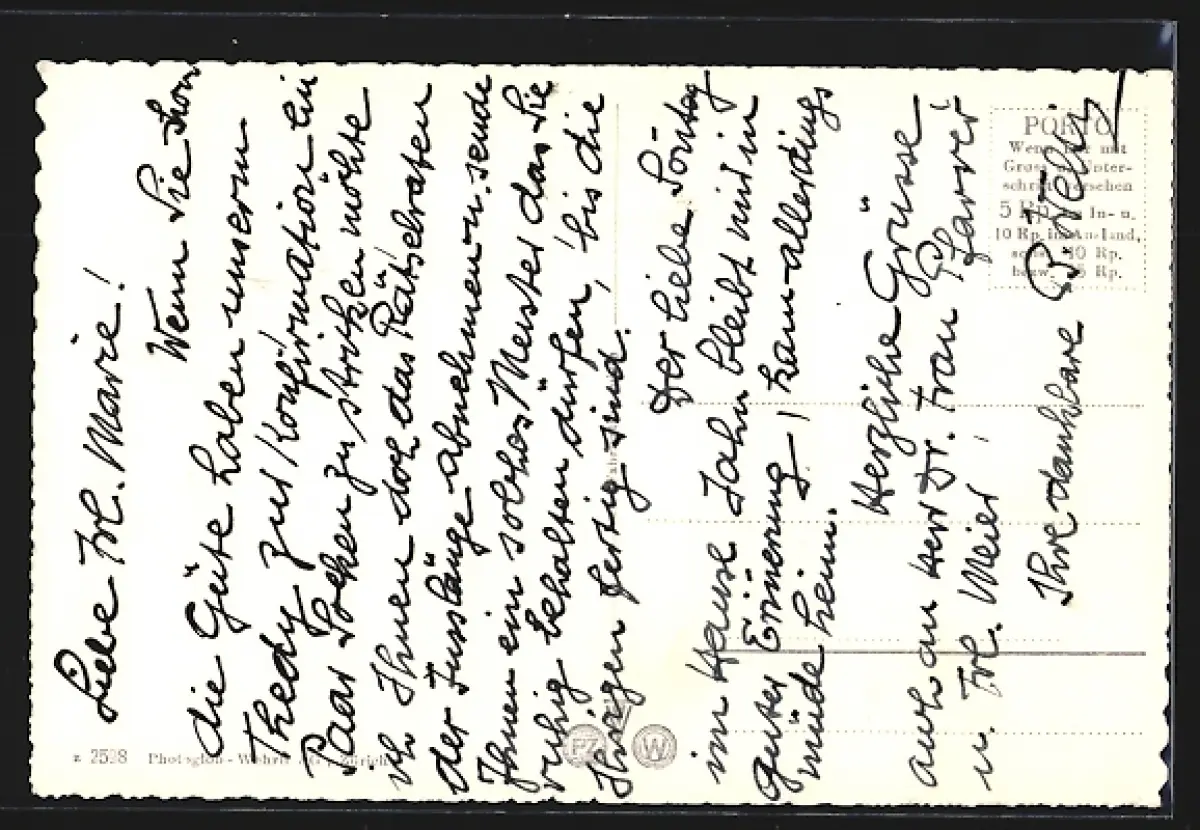 Liebe Frl. Marie!
Wenn Sie schon
die Güte haben unserm
Thedy zur Konfirmation ein
Paar Socken zu stricken möchte
ich Ihnen doch das Rätselraten
der Fusslänge abnehmen u. sende
Ihnen ein solches Muster das Sie
ruhig behalten dürfen, bis die
Ihrigen fertig sind.
Der liebe Sontag
im Hause Jahn bleibt mir in
guter Erinnerung, kam allerdings
müde heim.
Herzliche Grüsse
auch an Herr Dr. Frau Pfarrer
u. Frl. Meier
Ihre dankbare
PORTO
Wenn nur mit
Gruss u. Unter-
schrift versehen
5 Rp. im In- u.
10 Rp. im Ausland,
sonst 10 Rp.
bezw. Rp.
z 2528 Photoglob-Wehrli A.G., Zürich
PZ
W